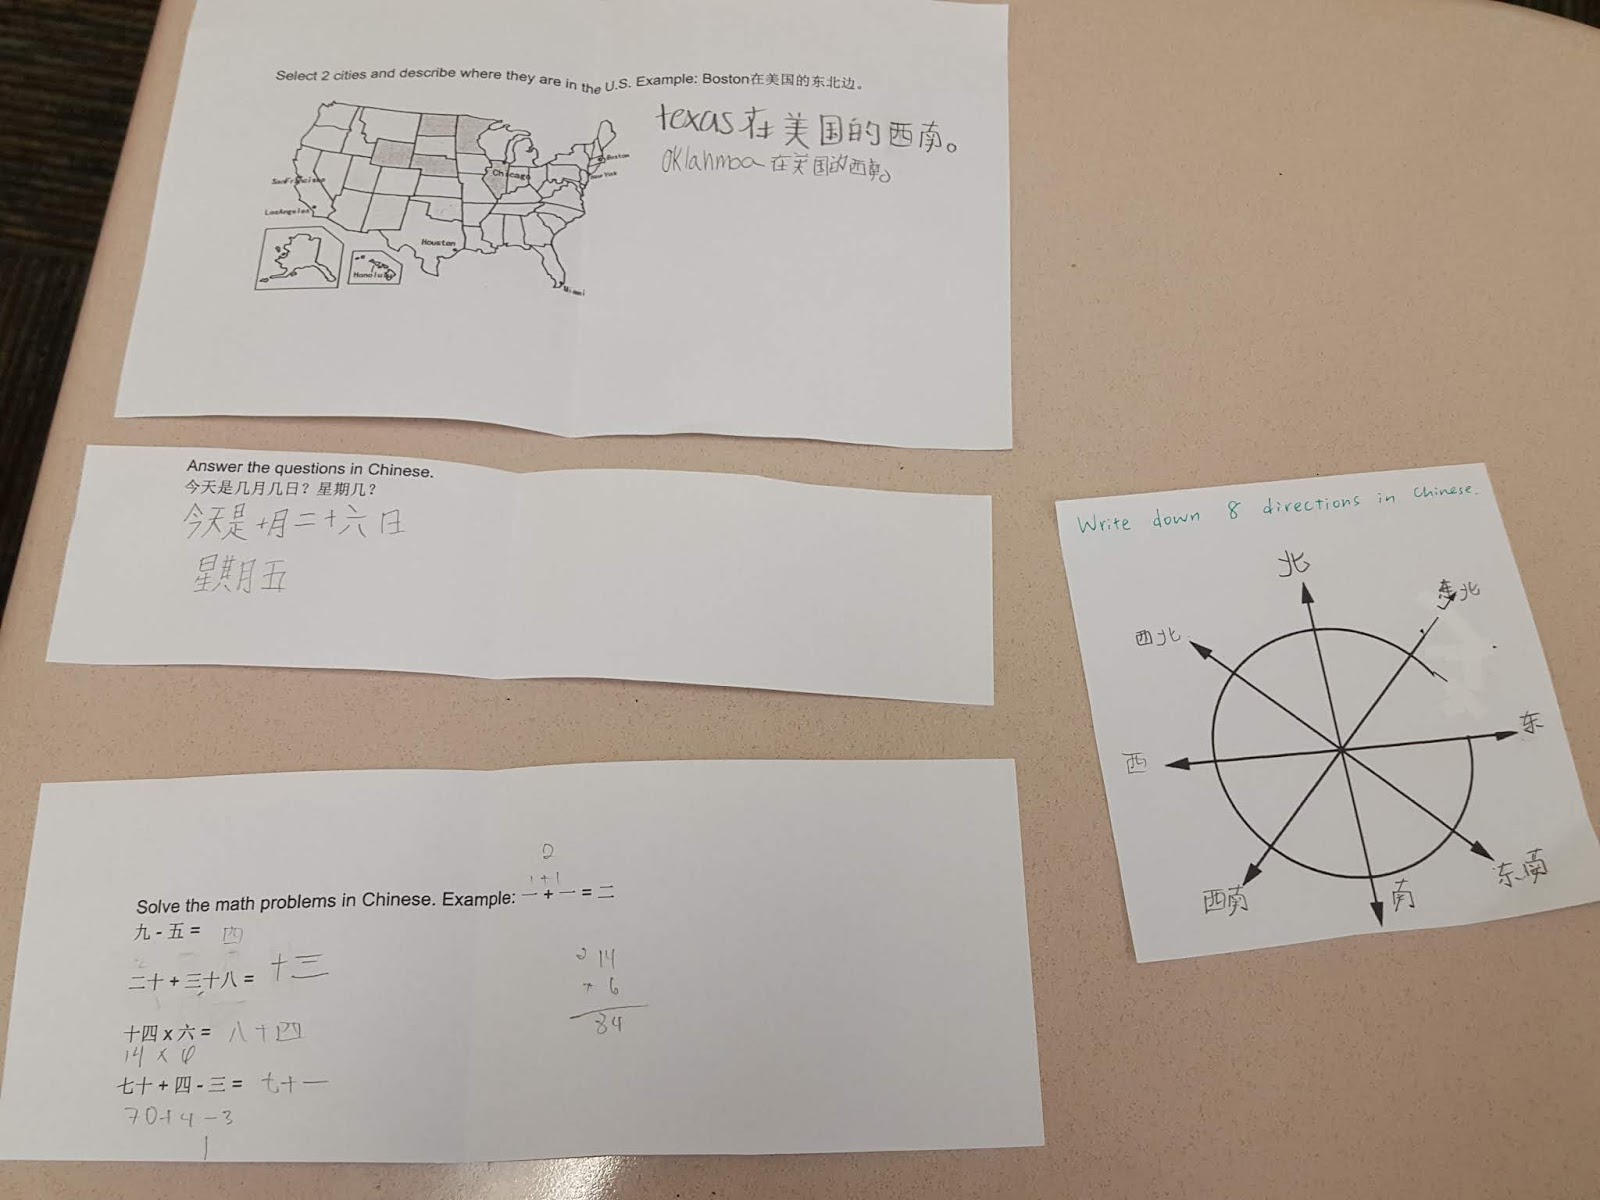 Select 2 cities and describe where they are in the U.S. Example: Boston在美国的东北边。
texas在美国的西南。
oklahmoa在美国的西南。
Boston
New York
Chicago
San Francisco
Los Angeles
Houston
Honolulu
Miami
Answer the questions in Chinese.
今天是几月几日？星期几？
今天是十月二十六日
星期五
Write down 8 directions in Chinese.
北
东北
西北
东
西
东南
西南
南
2
1+1
Solve the math problems in Chinese. Example: 一 + 一 = 二
九 - 五 = 四
二十 + 三十八 = 十三
十四 x 六 = 八十四
14 x 6
七十 + 四 - 三 = 七十一
70+4-3
1
2 14
x 6
84